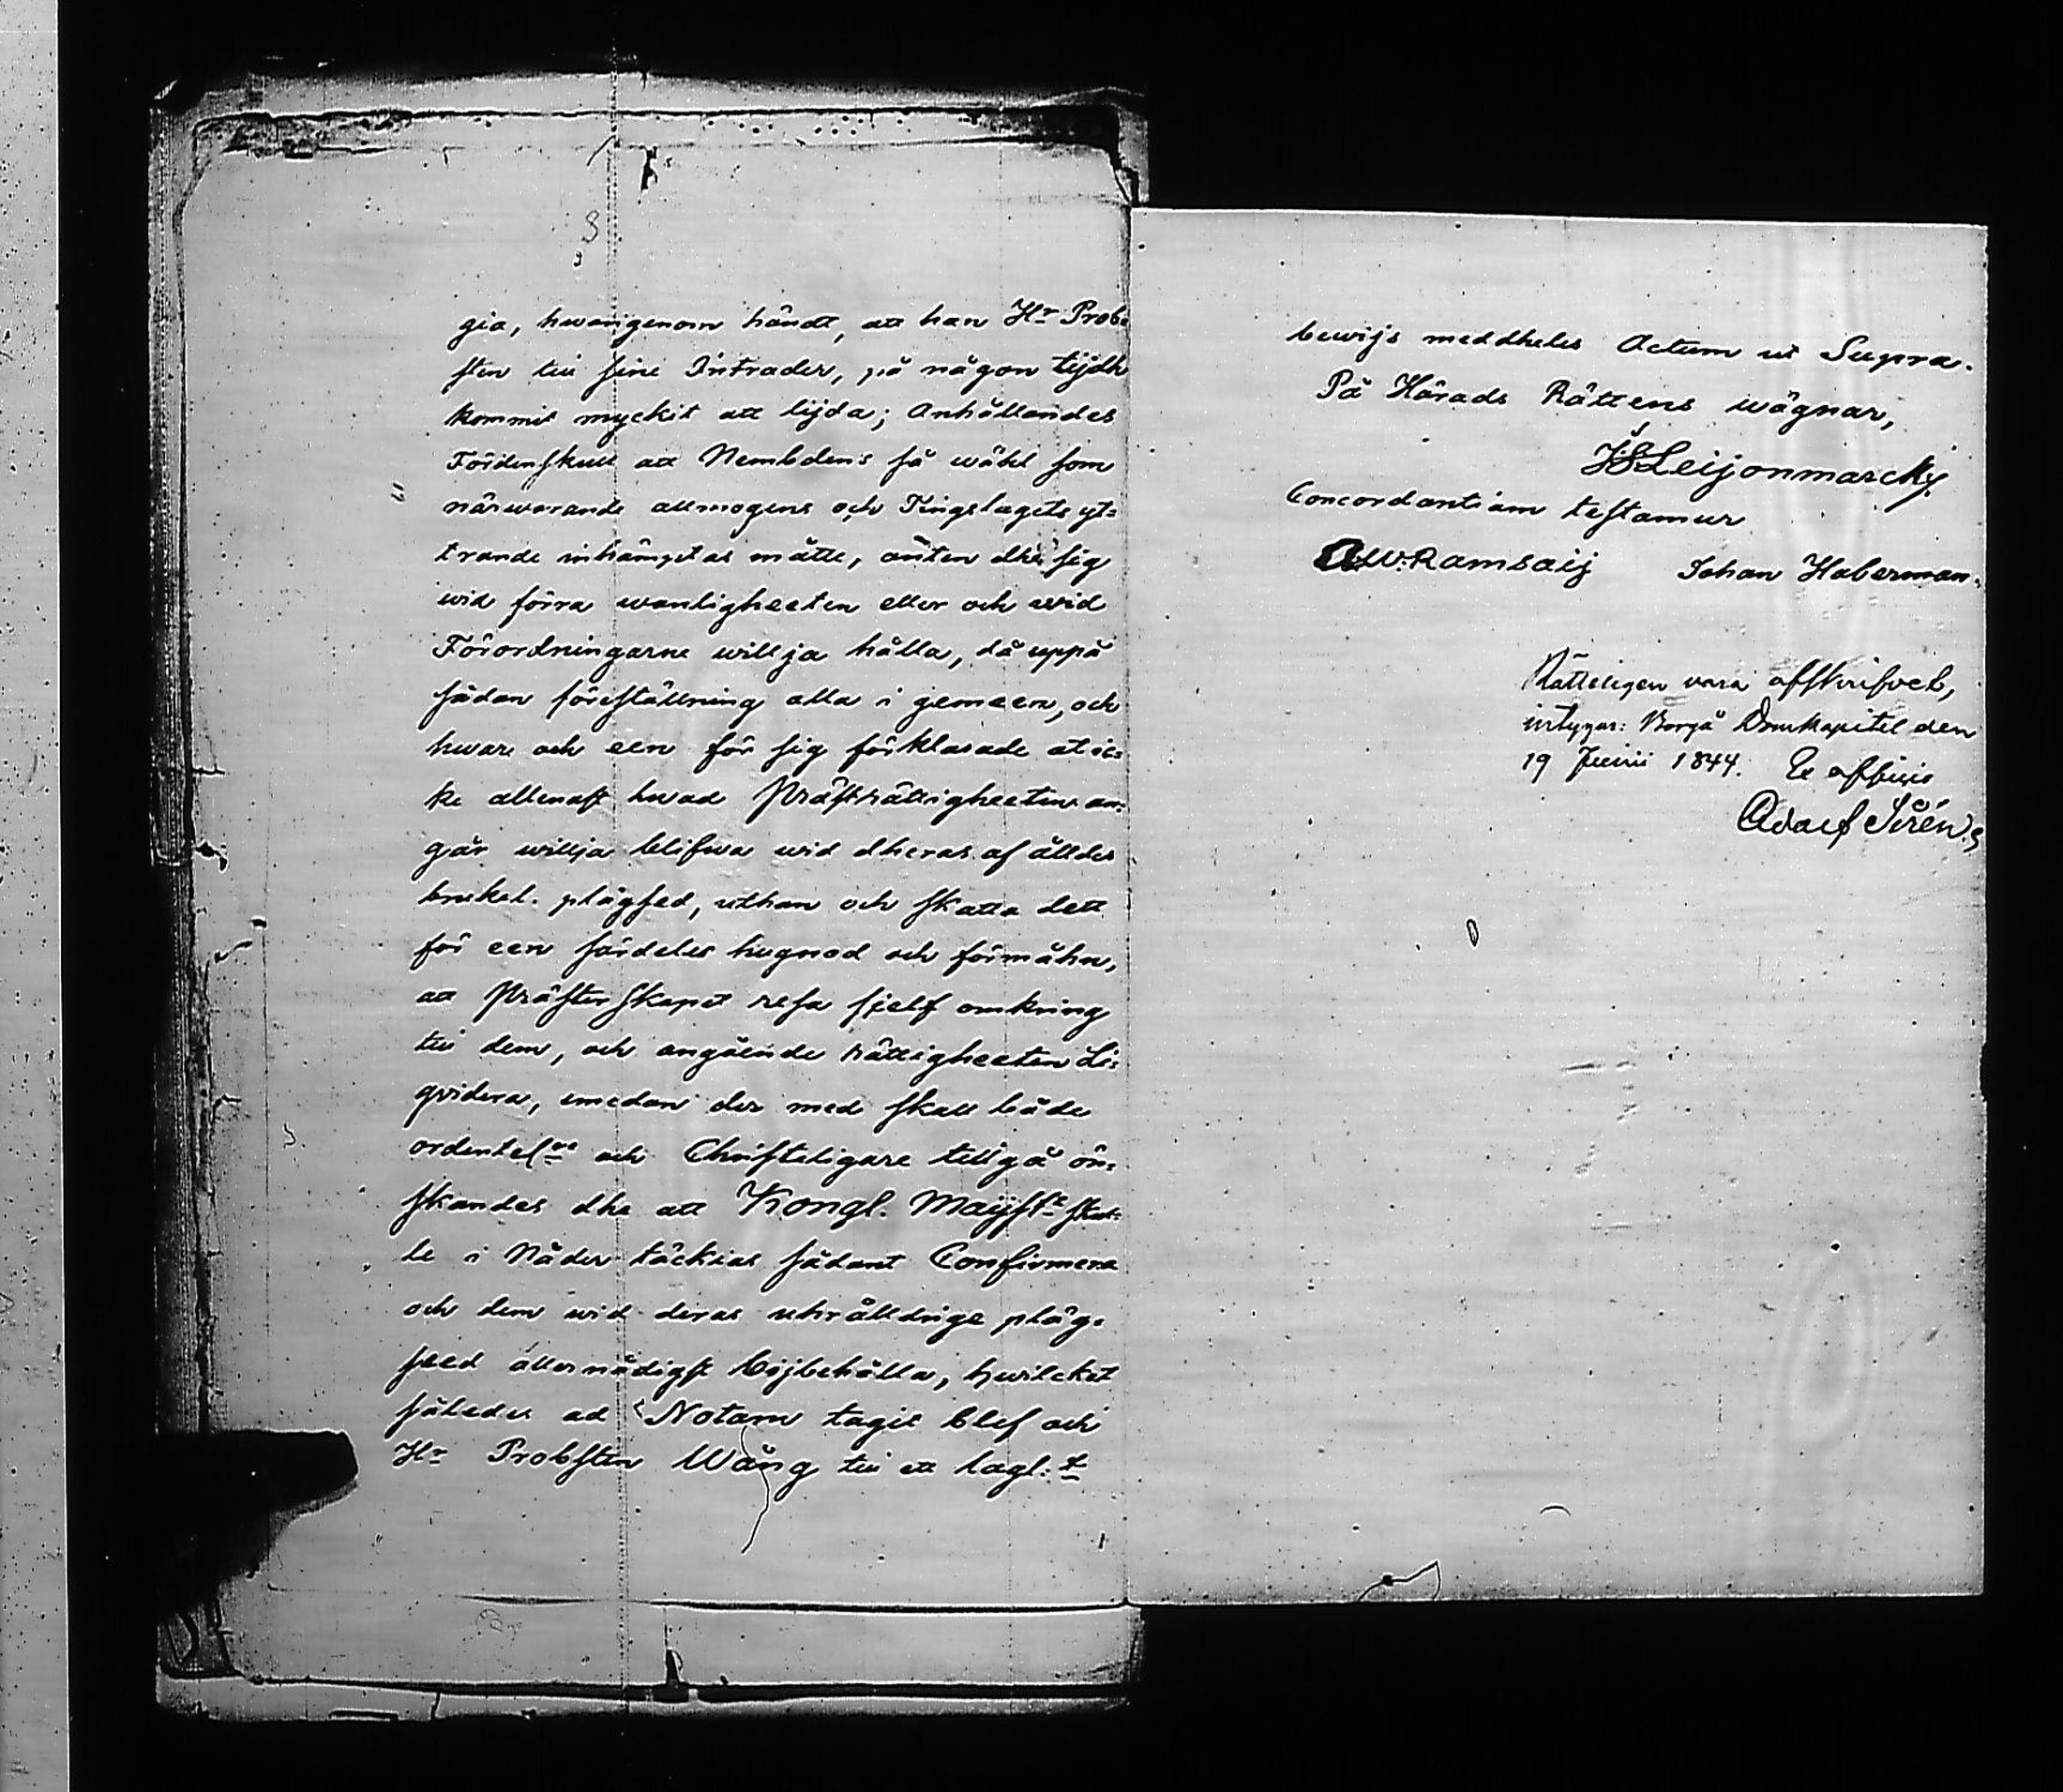 gia, hwarigenom händt, att han Hr Prob-
sten till sine Intrader, på någon tijdh
kommit myckit att lijda; Anhållandes
Fördenskull att Nembdens så wähl som
närwarande allmogens och Tingslagets yt-
trande inhämptas måtte, anten dhe sig
wid förra wanligheeten eller och wid
Förordningarne willja hålla, då uppå
sådan föreställning alla i gemeen, och
hwar och een för sig förklarade at ic-
ke allenast hwad Prästrättigheeten an-
går willja blifwa wid dheras af ålder
brukel. plägsed, uthan och skatta dett
för een särdeles hugnad och förmåhn,
att Prästerskapet resa sielf omkring
till dem, och angående rättigheeten Li-
qvidera, emedan der med skall både
ordentel:re och Christeligare tillgå ön-
skandes dhe att Kongl. Mayst:t skul-
le i Nåder täckias sådant Confirmera
och dem wid deras uhrålldrige pläg-
seed allernådigst bijbehålla, hwilcket
således ad Notam tagit blef och
Hr Probsten Wång till ett lagl:t
bewijs meddheles Actum ut Supra.
På Härads Rättens wägnar,
J S Leijonmarck
Concordantiam testamur
A.W: Ramsaij Johan Haberman.
Rätteligen vara afskrifvet,
intygar: Borgå Domkapitel den
19 Junii 1844. Ex officio
Adolf Sirén.